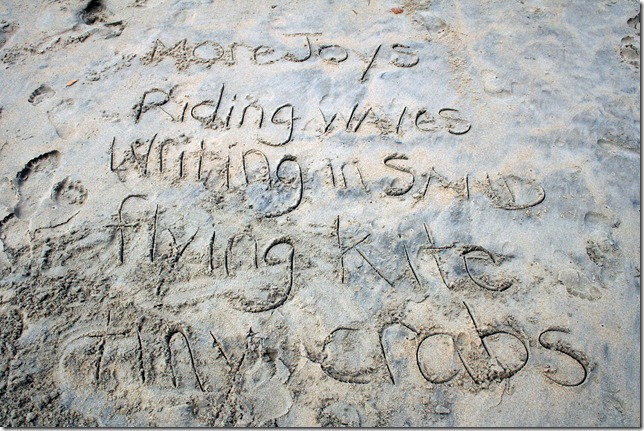 More Joys
Riding WAVes
Writing in SAND
flying kite
tiny crabs